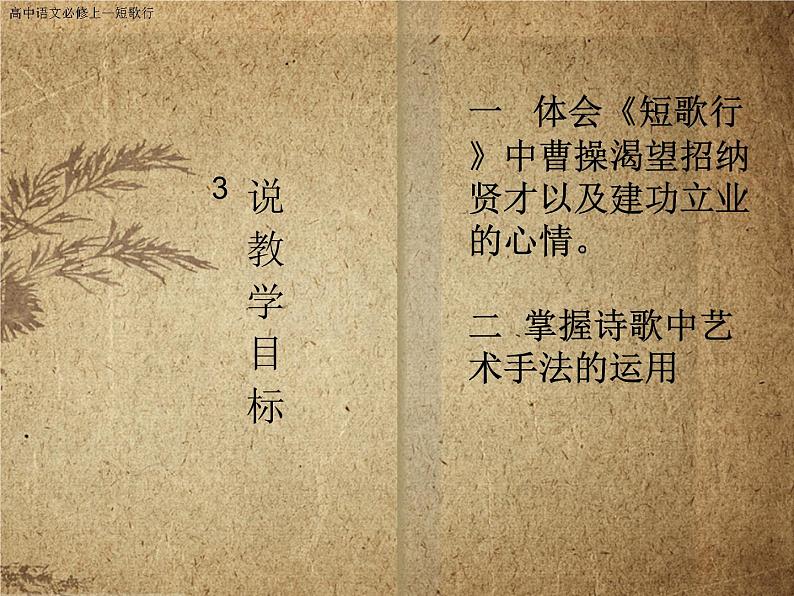 高中语文必修上—短歌行
3
说教学目标
一 体会《短歌行
》中曹操渴望招纳
贤才以及建功立业
的心情。
二 掌握诗歌中艺
术手法的运用